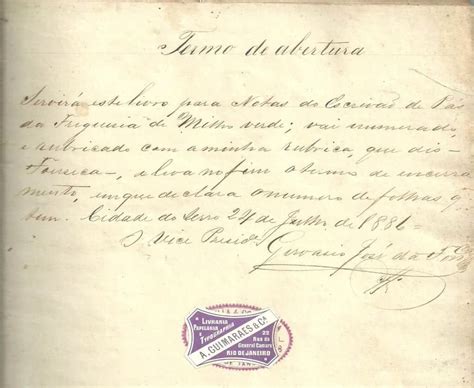 Termo de abertura
Servirá este livro para Notas do Escrivão de Pás
da Freguesia de Milho verde; vai numerado,
e rubricado com a minha rubrica, que dis-
Fonseca-, e leva no fim o termo de encerra-
mento, em que declara o numero de folhas q'
tem. Cidade do Serro 24 de Julho de 1886-
Vice Presid.
Gervasio José da
LIVRARIA
PAPELARIA
E
TYPOGRAPHIA
A. GUIMARAES & Ca.
22
RUA DO
GENERAL CAMARA
RIO DE JANEIRO